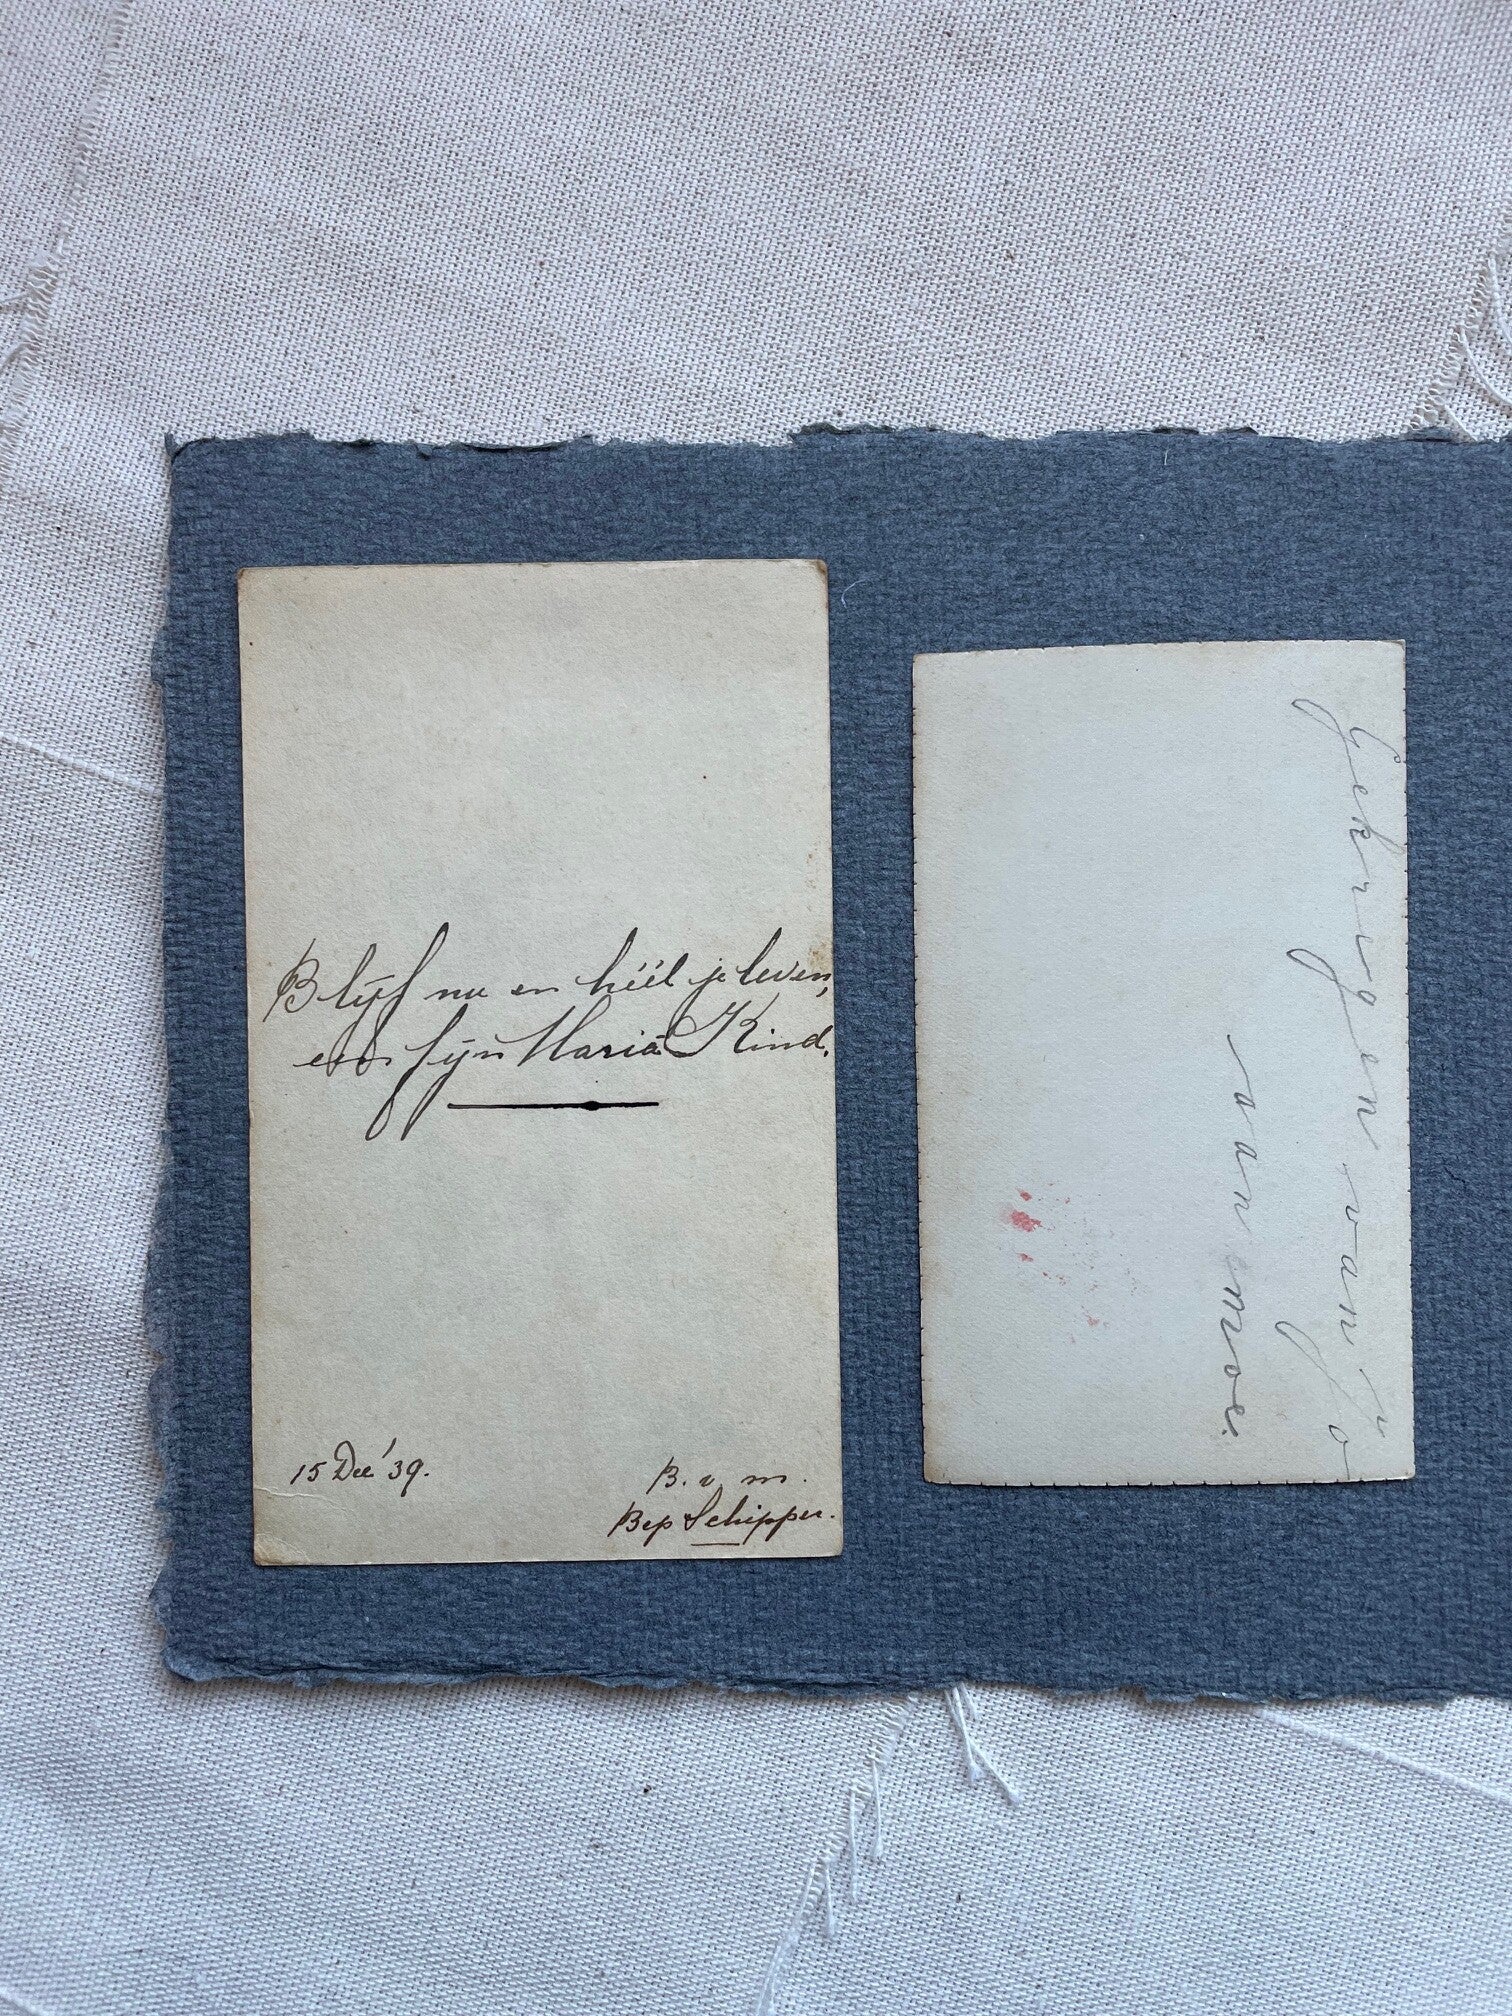 Blijf nu en héél je leven,
een fijn Maria Kind.
15 Dec '39.
B. v m.
Bep Schipper.
Gekregen van Jo
van Moe.